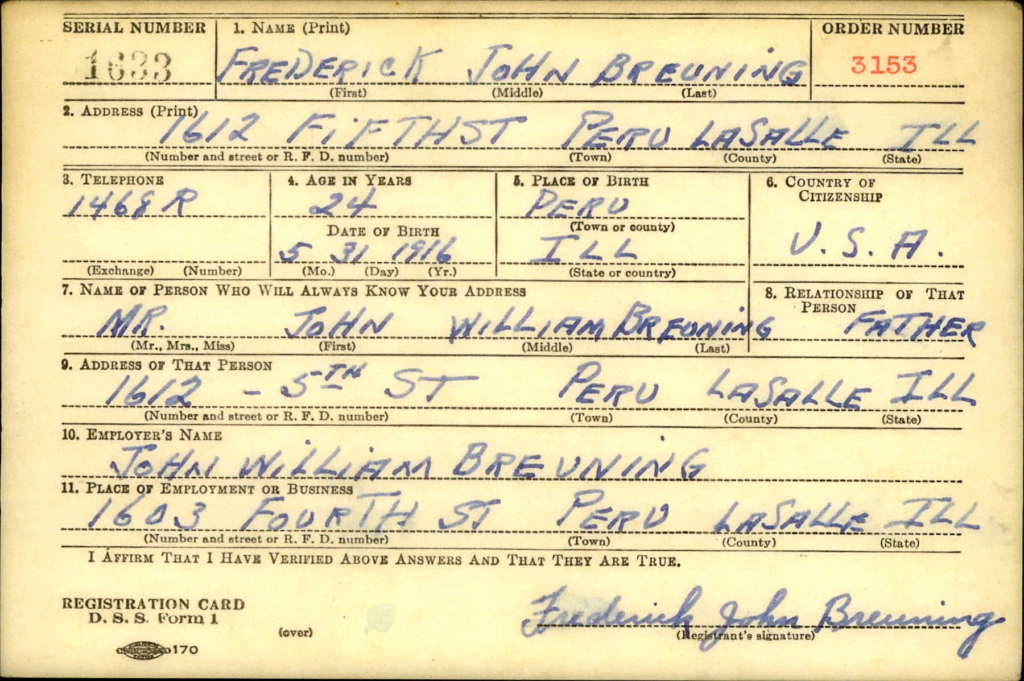 SERIAL NUMBER 1. NAME (Print) ORDER NUMBER
1633 FREDERICK JOHN BREUNING 3153
(First) (Middle) (Last)
2. ADDRESS (Print)
1612 FIFTH ST PERU LASALLE ILL
(Number and street or R. F. D. number) (Town) (County) (State)
3. TELEPHONE 4. AGE IN YEARS 5. PLACE OF BIRTH 6. COUNTRY OF CITIZENSHIP
1468 R 24 PERU
DATE OF BIRTH (Town or county)
5 31 1916 ILL U. S. A.
(Exchange) (Number) (Mo.) (Day) (Yr.) (State or country)
7. NAME OF PERSON WHO WILL ALWAYS KNOW YOUR ADDRESS 8. RELATIONSHIP OF THAT PERSON
MR. JOHN WILLIAM BREUNING FATHER
(Mr., Mrs., Miss) (First) (Middle) (Last)
9. ADDRESS OF THAT PERSON
1612 - 5TH ST PERU LASALLE ILL
(Number and street or R. F. D. number) (Town) (County) (State)
10. EMPLOYER'S NAME
JOHN WILLIAM BREUNING
11. PLACE OF EMPLOYMENT OR BUSINESS
1603 FOURTH ST PERU LASALLE ILL
(Number and street or R. F. D. number) (Town) (County) (State)
I AFFIRM THAT I HAVE VERIFIED ABOVE ANSWERS AND THAT THEY ARE TRUE.
REGISTRATION CARD
D. S. S. Form 1
Frederick John Breuning
(over) (Registrant's signature)
170